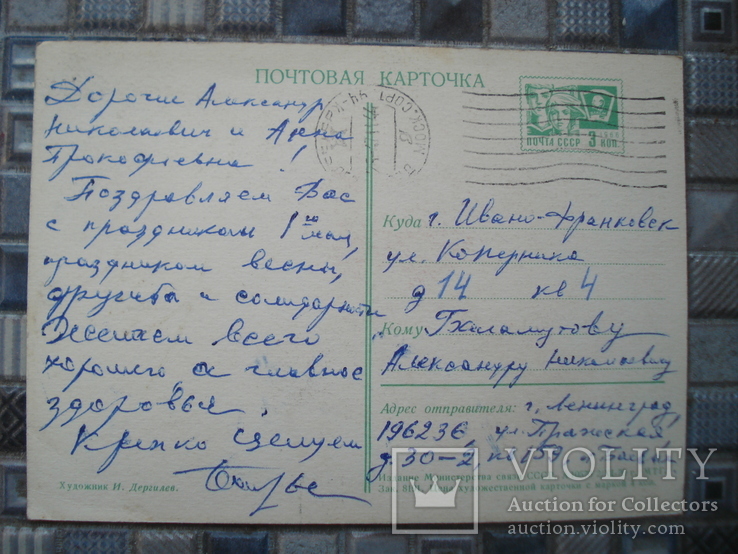 ПОЧТОВАЯ КАРТОЧКА
Дорогие Александр
Николаевич и Анна
Прокофьевна!
Поздравляем Вас
с праздником 1го мая,
праздником весны,
дружбы и солидарности
Желаем всего
хорошего, а главное
здоровья.
Крепко целуем
Художник И. Дергилев.
ПОЧТА СССР 3 КОП
Куда г. Ивано-Франковск
ул. Коперника
д 14 кв 4
Кому
Александру Николаевичу
Адрес отправителя: г. Ленинград,
196236 ул. Пражская
д. 30-2, кв 159
Издание Министерства связи СССР
VIOLITY
Auction for Collectors
auction.violity.com